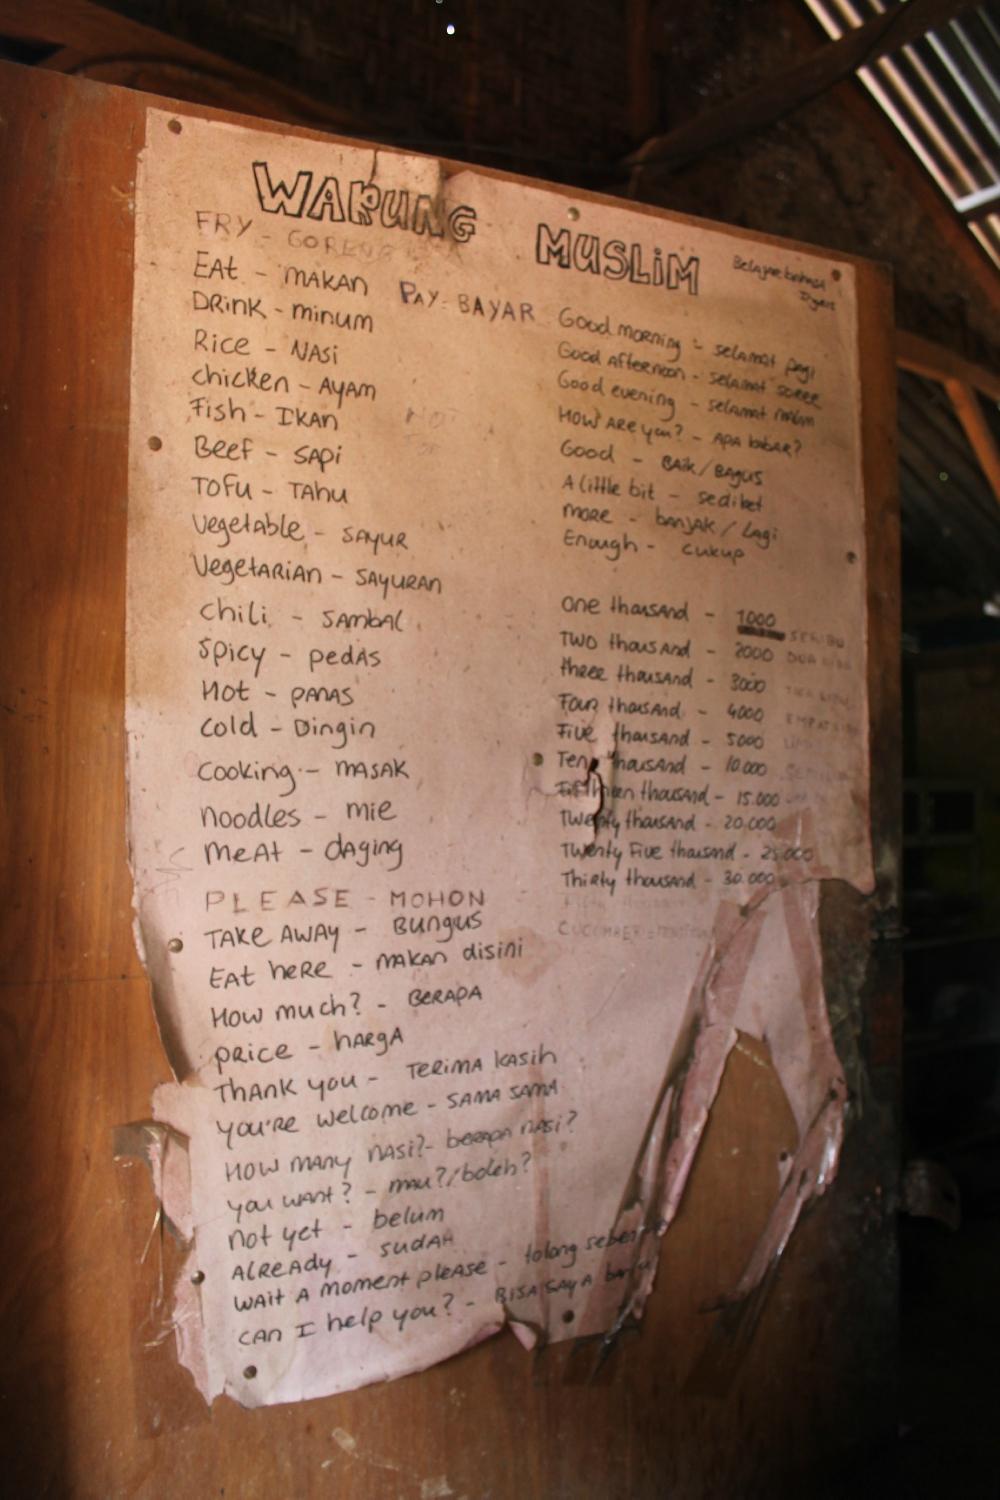 WARUNG MUSLIM
FRY - GORENG
EAt - MAKAN
PAY - BAYAR
DRINK - minum
Rice - NASi
chicken - AYAM
Fish - IKAN
Beef - SAPi
TOFU - TAhu
Vegetable - SAYUR
VegetARiAN - SAYURAN
chili - SAMBAL
Spicy - pedAS
Hot - PANAS
Cold - Dingin
Cooking - MASAK
noodles - mie
MEAT - dAging
PLEASE - MOHON
TAKE AWAY - Bungus
EAt heRe - MAKAN disini
How much? - BERAPA
price - hARgA
THANK you - TERIMA KASih
you're welcome - SAMA SAMA
How many nasi? - berapa nasi?
you want? - mau?/boleh?
not yet - belum
AlReADy - SUDAH
WAit A moment please - tolong
CAN I help you? - BISA SAYA
Good morning - selamat pagi
Good afternoon - selamat soree
Good evening - selamat malam
How ARe you? - APA kabar?
Good - BAik/BAgus
A little bit - sediket
more - banjAK / LAgi
Enough - cukup
one thousand - 1000 SERIBU
Two thousand - 2000 DUA
three thousand - 3000
Four thousand - 4000 EMPAT
Five thousand - 5000
Ten thousand - 10.000
thousand - 15.000
Twenty thousand - 20.000
Twenty Five thousand - 25.000
Thirty thousand - 30.000
CUCUMBER